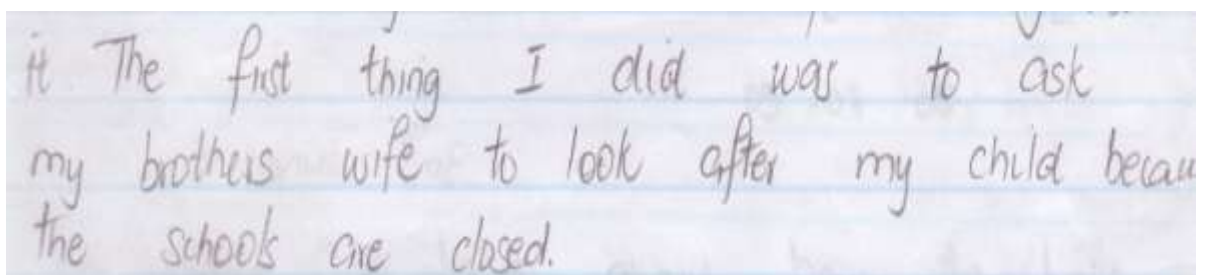 it The first thing I did was to ask
my brothers wife to look after my child becau
the schools are closed.